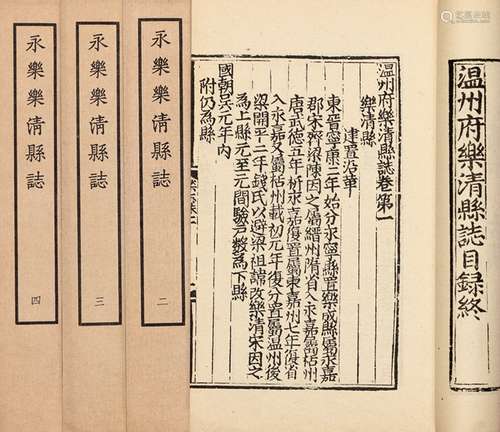 温州府樂清縣誌目録終
温州府樂清縣誌卷第一
建置沿革
樂清縣
東晉寧康三年始分永寧縣置樂成縣屬永嘉
郡宋齊梁陳因之屬縉州隋省入永嘉屬括州
唐武德五年析永嘉復置屬東嘉州七年復省
入永嘉又屬括州載初元年復分置屬温州後
梁開平二年錢氏以避梁祖諱改樂清宋因之
為上縣元至元間驗戶數為下縣
國朝吴元年内
附仍為縣
永樂樂清縣誌 二
永樂樂清縣誌 三
永樂樂清縣誌 四